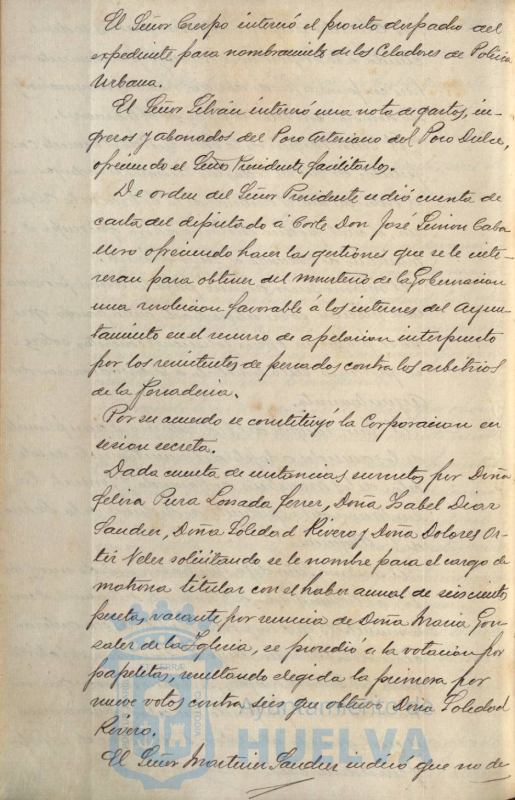 El Señor Crespo interesó el pronto despacho del
expediente para nombramiento de los Celadores de Policia
Urbana.
El Señor Silván interesó una nota de gastos, in-
gresos y abonados del Pozo Artesiano del Pozo Dulce,
ofreciendo el Señor Presidente facilitarlos.
De orden del Señor Presidente se dió cuenta de
carta del diputado á Corte Don José Limon Caba
llero ofreciendo hacer las gestiones que se le inte-
resan para obtener del Ministerio de la Gobernacion
una resolucion favorable á los intereses del Ayun-
tamiento en el recurso de apelacion interpuesto
por los remitentes de pescados contra los arbitrios
de la
Por su acuerdo se constituyó la Corporacion en
sesion secreta.
Dada cuenta de instancias suscritas por Doña
Felisa Pura Losada Ferrer, Doña Isabel Diaz
Sanchez, Doña Soledad Rivero y Doña Dolores Or-
tiz Veler solicitando se le nombre para el cargo de
matrona titular con el haber anual de seiscientas
pesetas, vacante por renuncia de Doña Maria Gon
zalez de la Iglesia, se procedió a la votacion por
papeletas, resultando elegida la primera por
nueve votos contra seis que obtuvo Doña Soledad
Rivero.
El Señor Martinez Sanchez indicó que no de
Ayuntamiento de
HUELVA